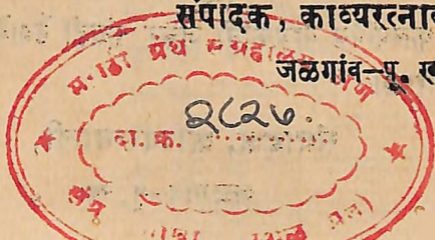 संपादक, काव्यरत्नाव
जळगांव–पू. ख
मराठी ग्रंथ संग्रहालय
दा. क. २८२७